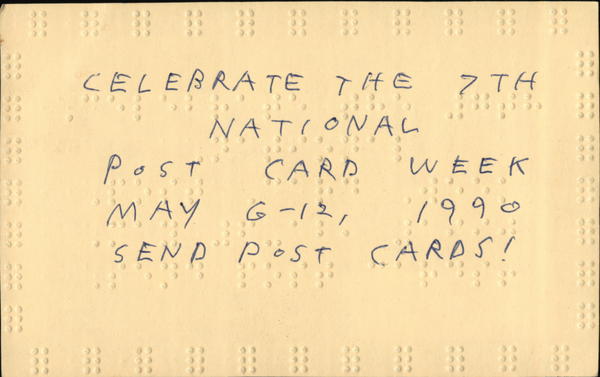 CELEBRATE THE 7TH
NATIONAL
POST CARD WEEK
MAY 6-12, 1990
SEND POST CARDS!